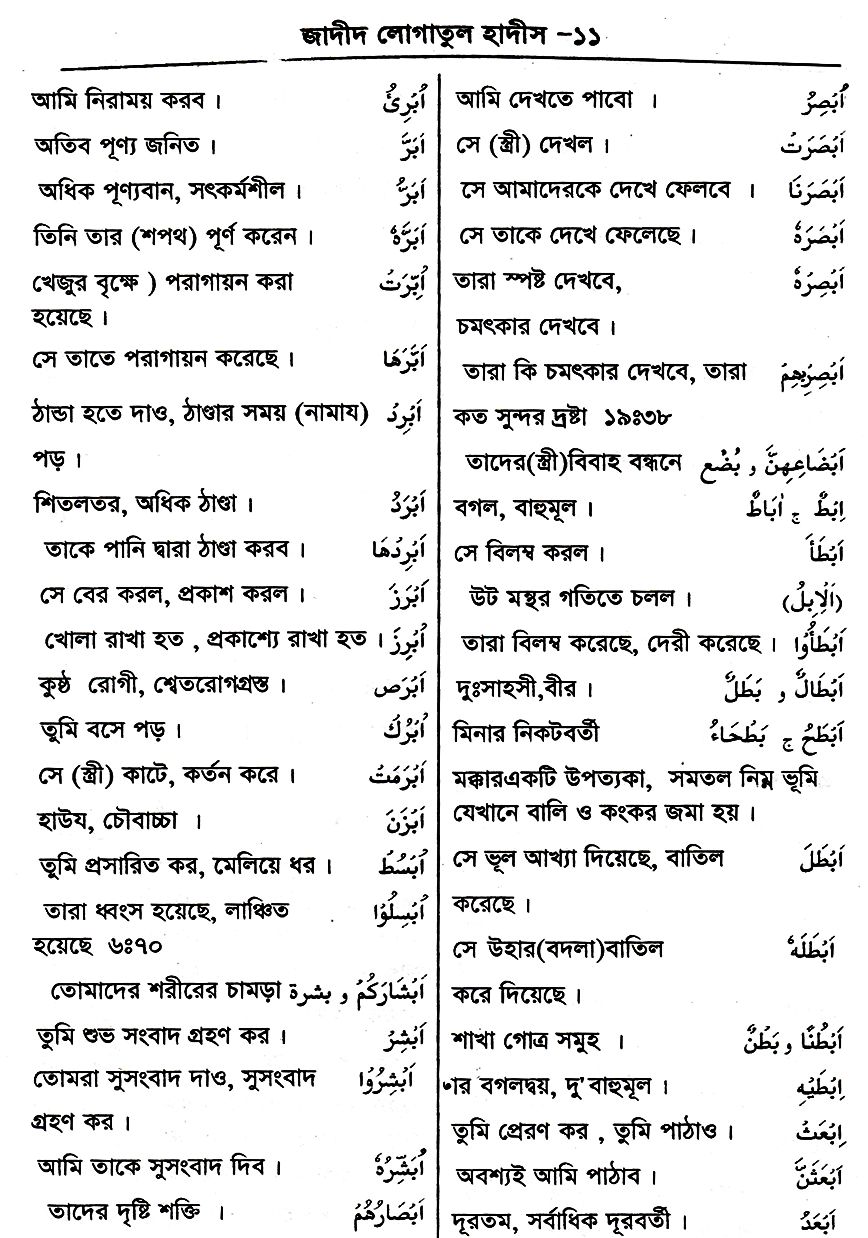 জাদীদ লোগাতুল হাদীস -১১
আমি নিরাময় করব । اُبْرِئُ
অতিব পূণ্য জনিত । اَبَرَّ
অধিক পূণ্যবান, সৎকর্মশীল । اَبَرُّ
তিনি তার (শপথ) পূর্ণ করেন । اَبَرَّهٗ
খেজুর বৃক্ষে ) পরাগায়ন করা اُبِّرَتْ
হয়েছে ।
সে তাতে পরাগায়ন করেছে । اَبَّرَهَا
ঠান্ডা হতে দাও, ঠাণ্ডার সময় (নামায) اَبْرِدْ
পড় ।
শিতলতর, অধিক ঠাণ্ডা । اَبْرَدُ
তাকে পানি দ্বারা ঠাণ্ডা করব । اَبْرِدُهَا
সে বের করল, প্রকাশ করল । اَبْرَزَ
খোলা রাখা হত , প্রকাশ্যে রাখা হত । اُبْرِزَ
কুষ্ঠ রোগী, শ্বেতরোগগ্রস্ত । اَبْرَص
তুমি বসে পড় । اُبْرُكْ
সে (স্ত্রী) কাটে, কর্তন করে । اَبْرَمَتْ
হাউয, চৌবাচ্চা । اَبْزَنَ
তুমি প্রসারিত কর, মেলিয়ে ধর । اُبْسُطْ
তারা ধ্বংস হয়েছে, লাঞ্চিত اُبْسِلُوْا
হয়েছে ৬ঃ৭০
তোমাদের শরীরের চামড়া اَبْشَارَكُمْ و بشرة
তুমি শুভ সংবাদ গ্রহণ কর । اَبْشِرْ
তোমরা সুসংবাদ দাও, সুসংবাদ اَبْشِرُوْا
গ্রহণ কর ।
আমি তাকে সুসংবাদ দিব । اُبَشِّرُهٗ
তাদের দৃষ্টি শক্তি । اَبْصَارُهُمْ
আমি দেখতে পাবো । اُبْصِرُ
সে (স্ত্রী) দেখল । اَبْصَرَتْ
সে আমাদেরকে দেখে ফেলবে । اَبْصَرَنَا
সে তাকে দেখে ফেলেছে । اَبْصَرَهٗ
তারা স্পষ্ট দেখবে, اَبْصِرُهٗ
চমৎকার দেখবে ।
তারা কি চমৎকার দেখবে, তারা اَبْصِرْبِهِمْ
কত সুন্দর দ্রষ্টা ১৯ঃ৩৮
তাদের(স্ত্রী)বিবাহ বন্ধনে اَبْضَاعِهِنَّ و بُضْع
বগল, বাহুমূল । اِبْطٌ ج اٰبَاطٌ
সে বিলম্ব করল । اَبْطَأَ
উট মন্থর গতিতে চলল । (اَلْاِبِلُ)
তারা বিলম্ব করেছে, দেরী করেছে । اَبْطَأُوْا
দুঃসাহসী,বীর । اَبْطَالٌ و بَطَلٌ
মিনার নিকটবর্তী اَبْطَحُ ج بَطْحَاءُ
মক্কারএকটি উপত্যকা, সমতল নিম্ন ভূমি
যেখানে বালি ও কংকর জমা হয় ।
সে ভূল আখ্যা দিয়েছে, বাতিল اَبْطَلَ
করেছে ।
সে উহার(বদলা)বাতিল اَبْطَلَهٗ
করে দিয়েছে ।
শাখা গোত্র সমুহ । اَبْطُنًا و بَطْنٌ
ার বগলদ্বয়, দু'বাহুমূল । اِبْطَيْهِ
তুমি প্রেরণ কর , তুমি পাঠাও । اِبْعَثْ
অবশ্যই আমি পাঠাব । اَبْعَثَنَّ
দূরতম, সর্বাধিক দূরবর্তী । اَبْعَدُ